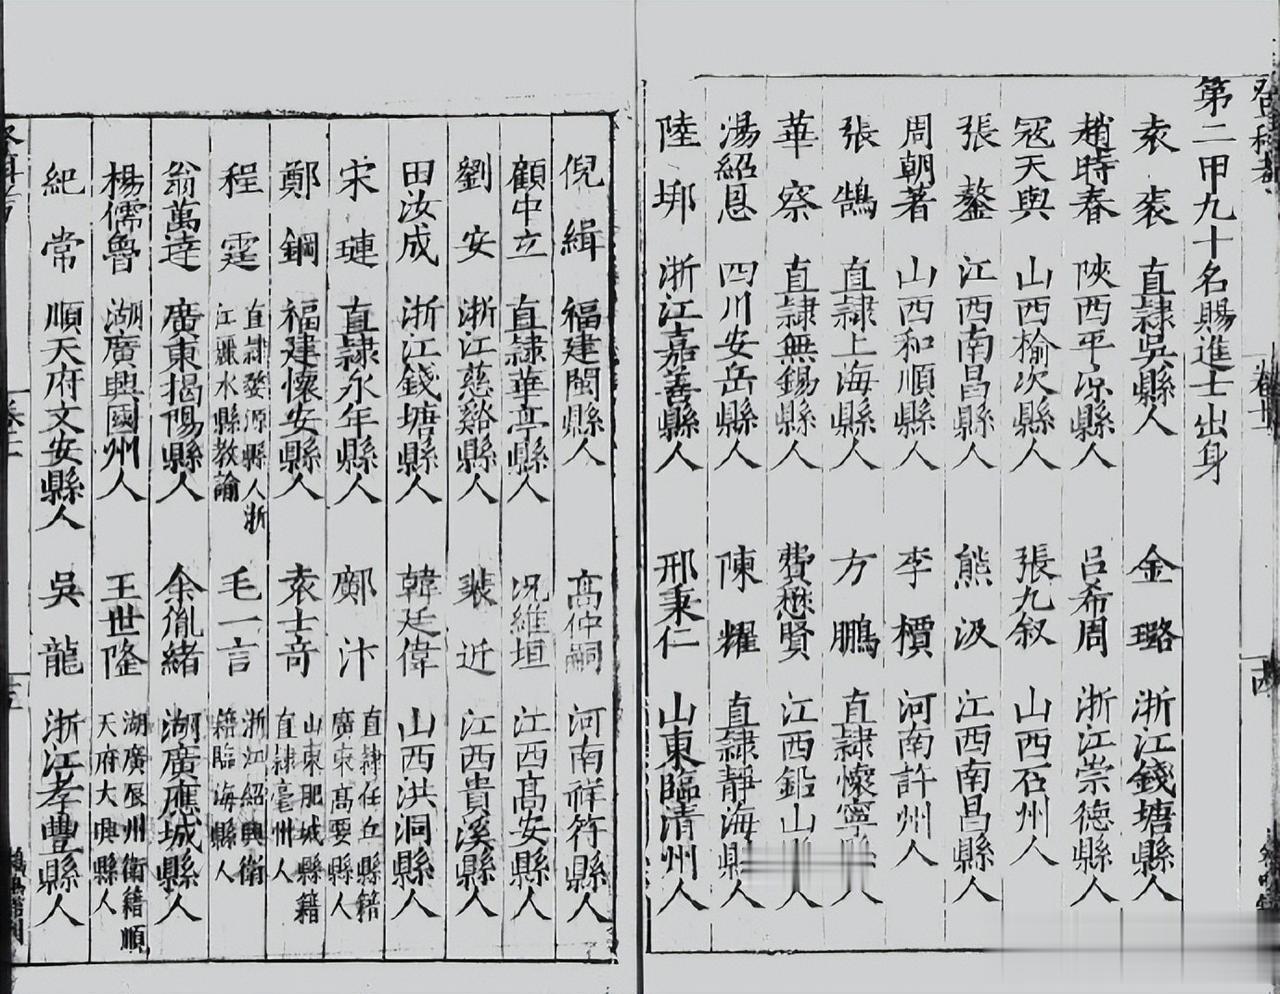 第二甲九十名賜進士出身
袁袠 直隸吳縣人 金璐 浙江錢塘縣人
趙時春 陝西平凉縣人 呂希周 浙江崇德縣人
冦天與 山西榆次縣人 張九叙 山西石州人
張鏊 江西南昌縣人 熊汲 江西南昌縣人
周朝著 山西和順縣人 李檟 河南許州人
張鵠 直隸上海縣人 方鵬 直隸懷寧縣人
華察 直隸無錫縣人 費懋賢 江西鉛山縣人
湯紹恩 四川安岳縣人 陳耀 直隸靜海縣人
陸垹 浙江嘉善縣人 邢秉仁 山東臨清州人
倪緝 福建閩縣人 髙仲嗣 河南祥符縣人
顧中立 直隸華亭縣人 况維垣 江西髙安縣人
劉安 浙江慈谿縣人 裴近 江西貴溪縣人
田汝成 浙江錢塘縣人 韓廷偉 山西洪洞縣人
宋璉 直隸永年縣人 鄺汴 直隸任丘縣籍廣東髙要縣人
鄭鋼 福建懷安縣人 袁士竒 山東肥城縣籍直隸亳州人
程霆 直隸婺源縣人浙江麗水縣教諭 毛一言 浙江紹興衛籍臨海縣人
翁萬達 廣東揭陽縣人 余胤緒 湖廣應城縣人
楊儒魯 湖廣興國州人 王世隆 湖廣辰州衛籍順天府大興縣人
紀常 順天府文安縣人 吳龍 浙江孝豐縣人